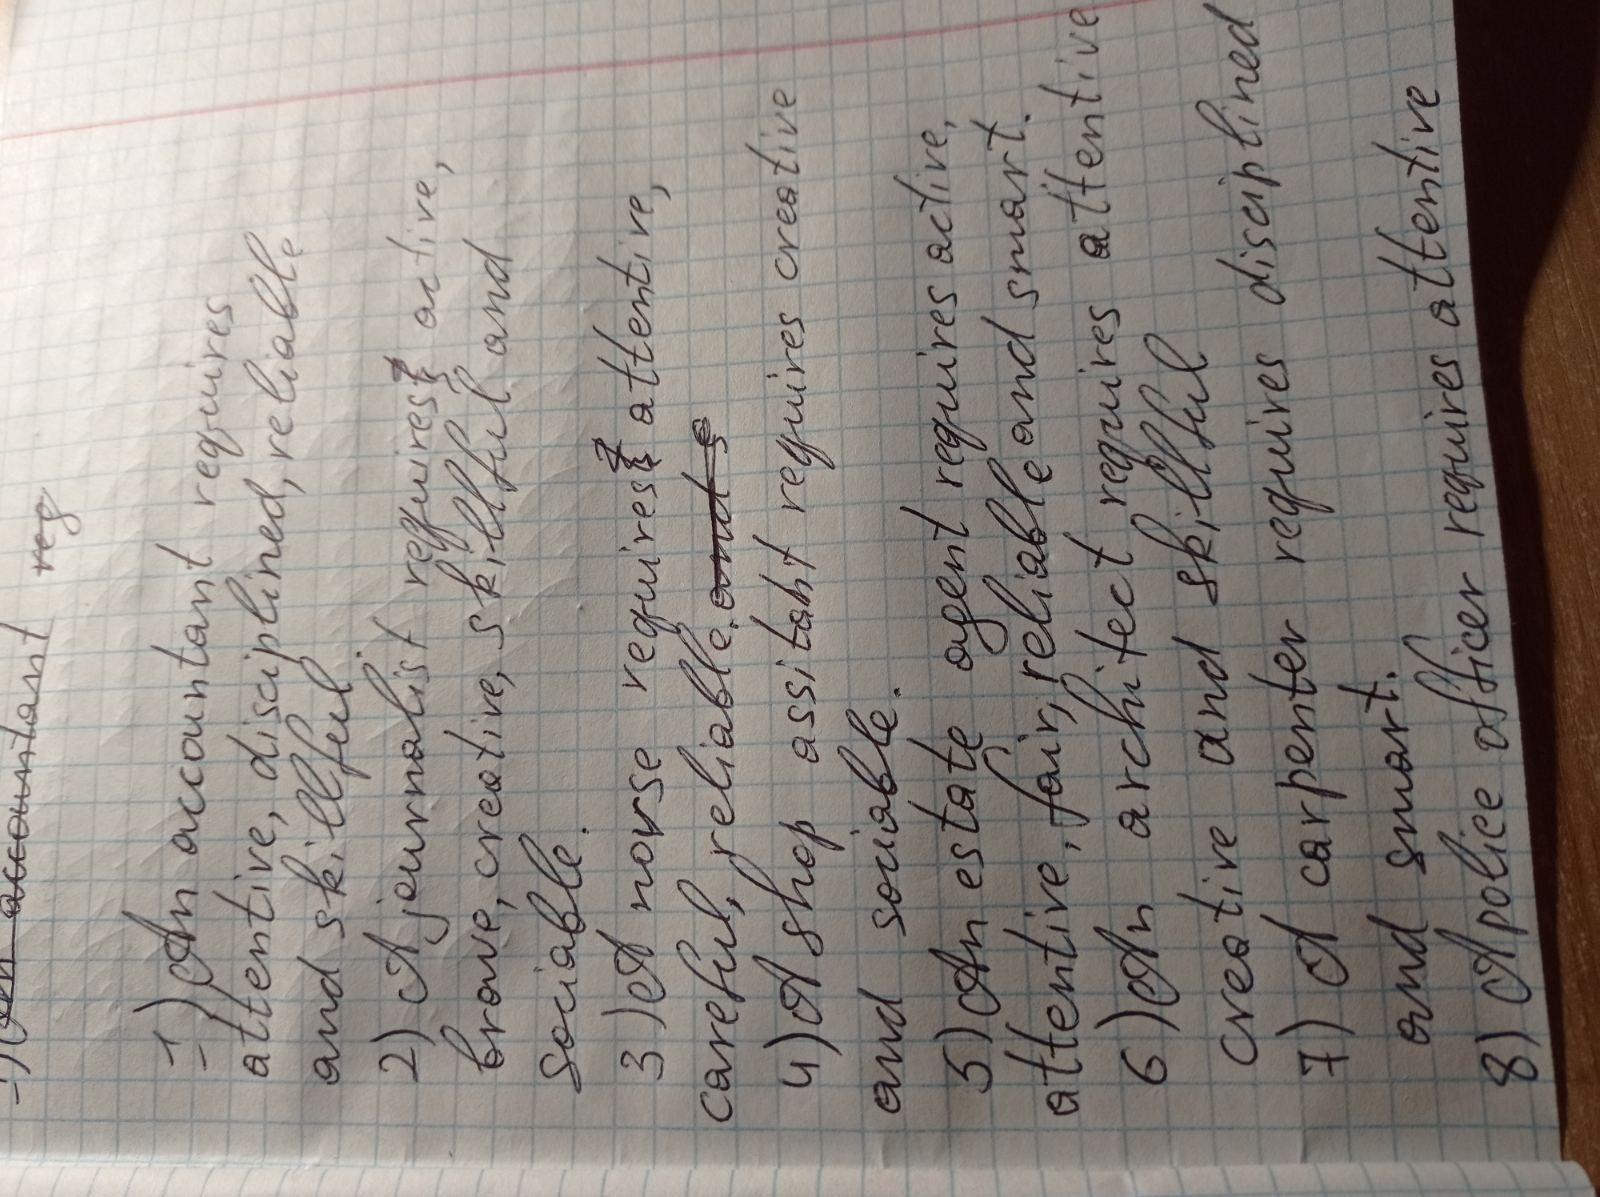 1) An accountant req
1) An accountant requires
attentive, disciplined, reliable
and skillful.
2) A journalist requires active,
brave, creative, skillful and
sociable.
3) A norse requires attentive,
careful, reliable. and s
4) A shop assitant requires creative
and sociable.
5) An estate agent requires active,
attentive, fair, reliable and smart.
6) An architect requires attentive
creative and skillful
7) A carpenter requires disciplined
and smart.
8) A police officer requires attentive